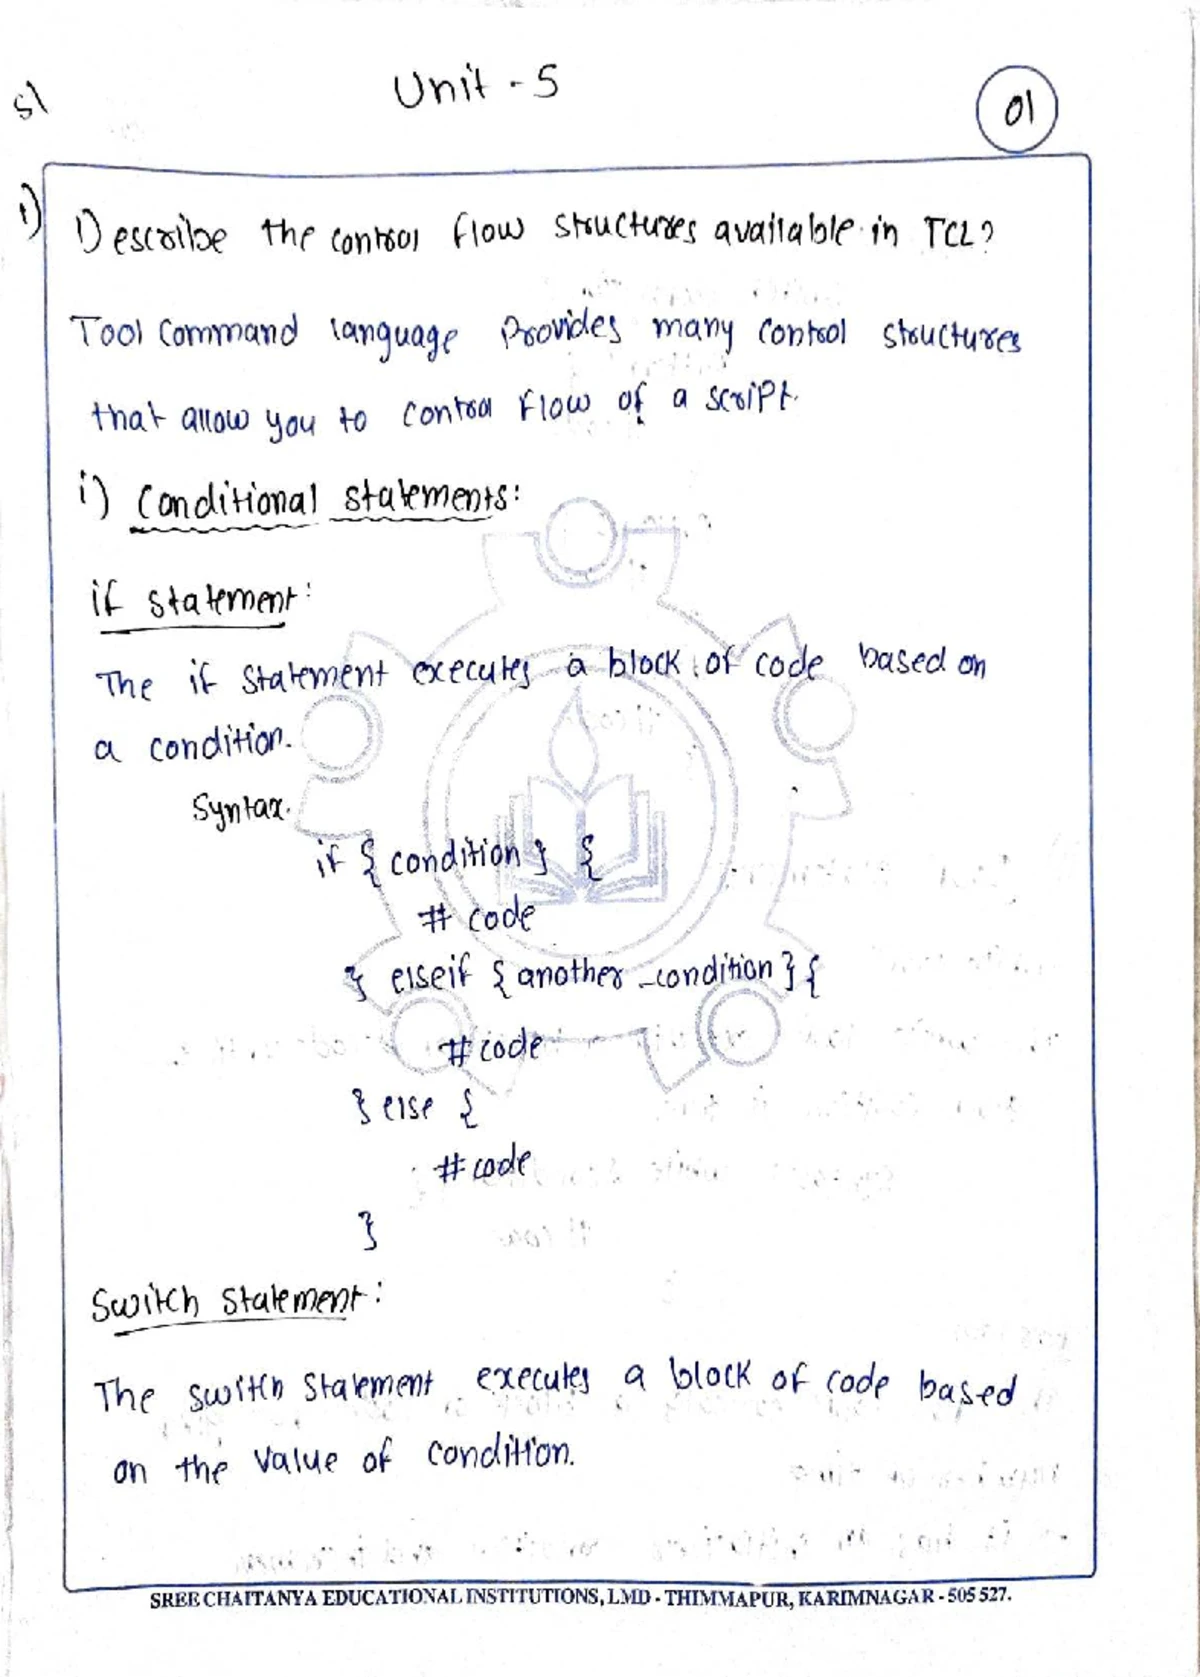 5)
Unit - 5
01
1) Describe the control flow structures available in TCL?
Tool Command language Provides many control structures
that allow you to control flow of a script.
i) Conditional statements:
if statement:
The if statement executes a block of code based on
a condition.
Syntax.
if { condition } {
# code
} elseif { another_condition } {
# code
} else {
# code
}
Switch statement:
The switch statement executes a block of code based
on the value of condition.
SREE CHAITANYA EDUCATIONAL INSTITUTIONS, LMD - THIMMAPUR, KARIMNAGAR - 505 527.